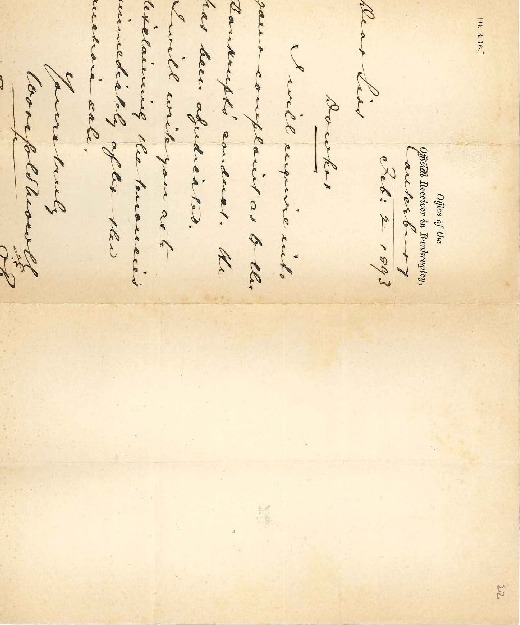 Office of the
Official Receiver in Bankruptcy,
Canterbury
Feb. 2 1893
Dear Sirs
Dowker
I will enquire into
your complaint as to the
Bankrupt's conduct. He
has been adjudicated.
I will write you as to
retaining the tenancies
immediately after the
sale.
Yours truly
22